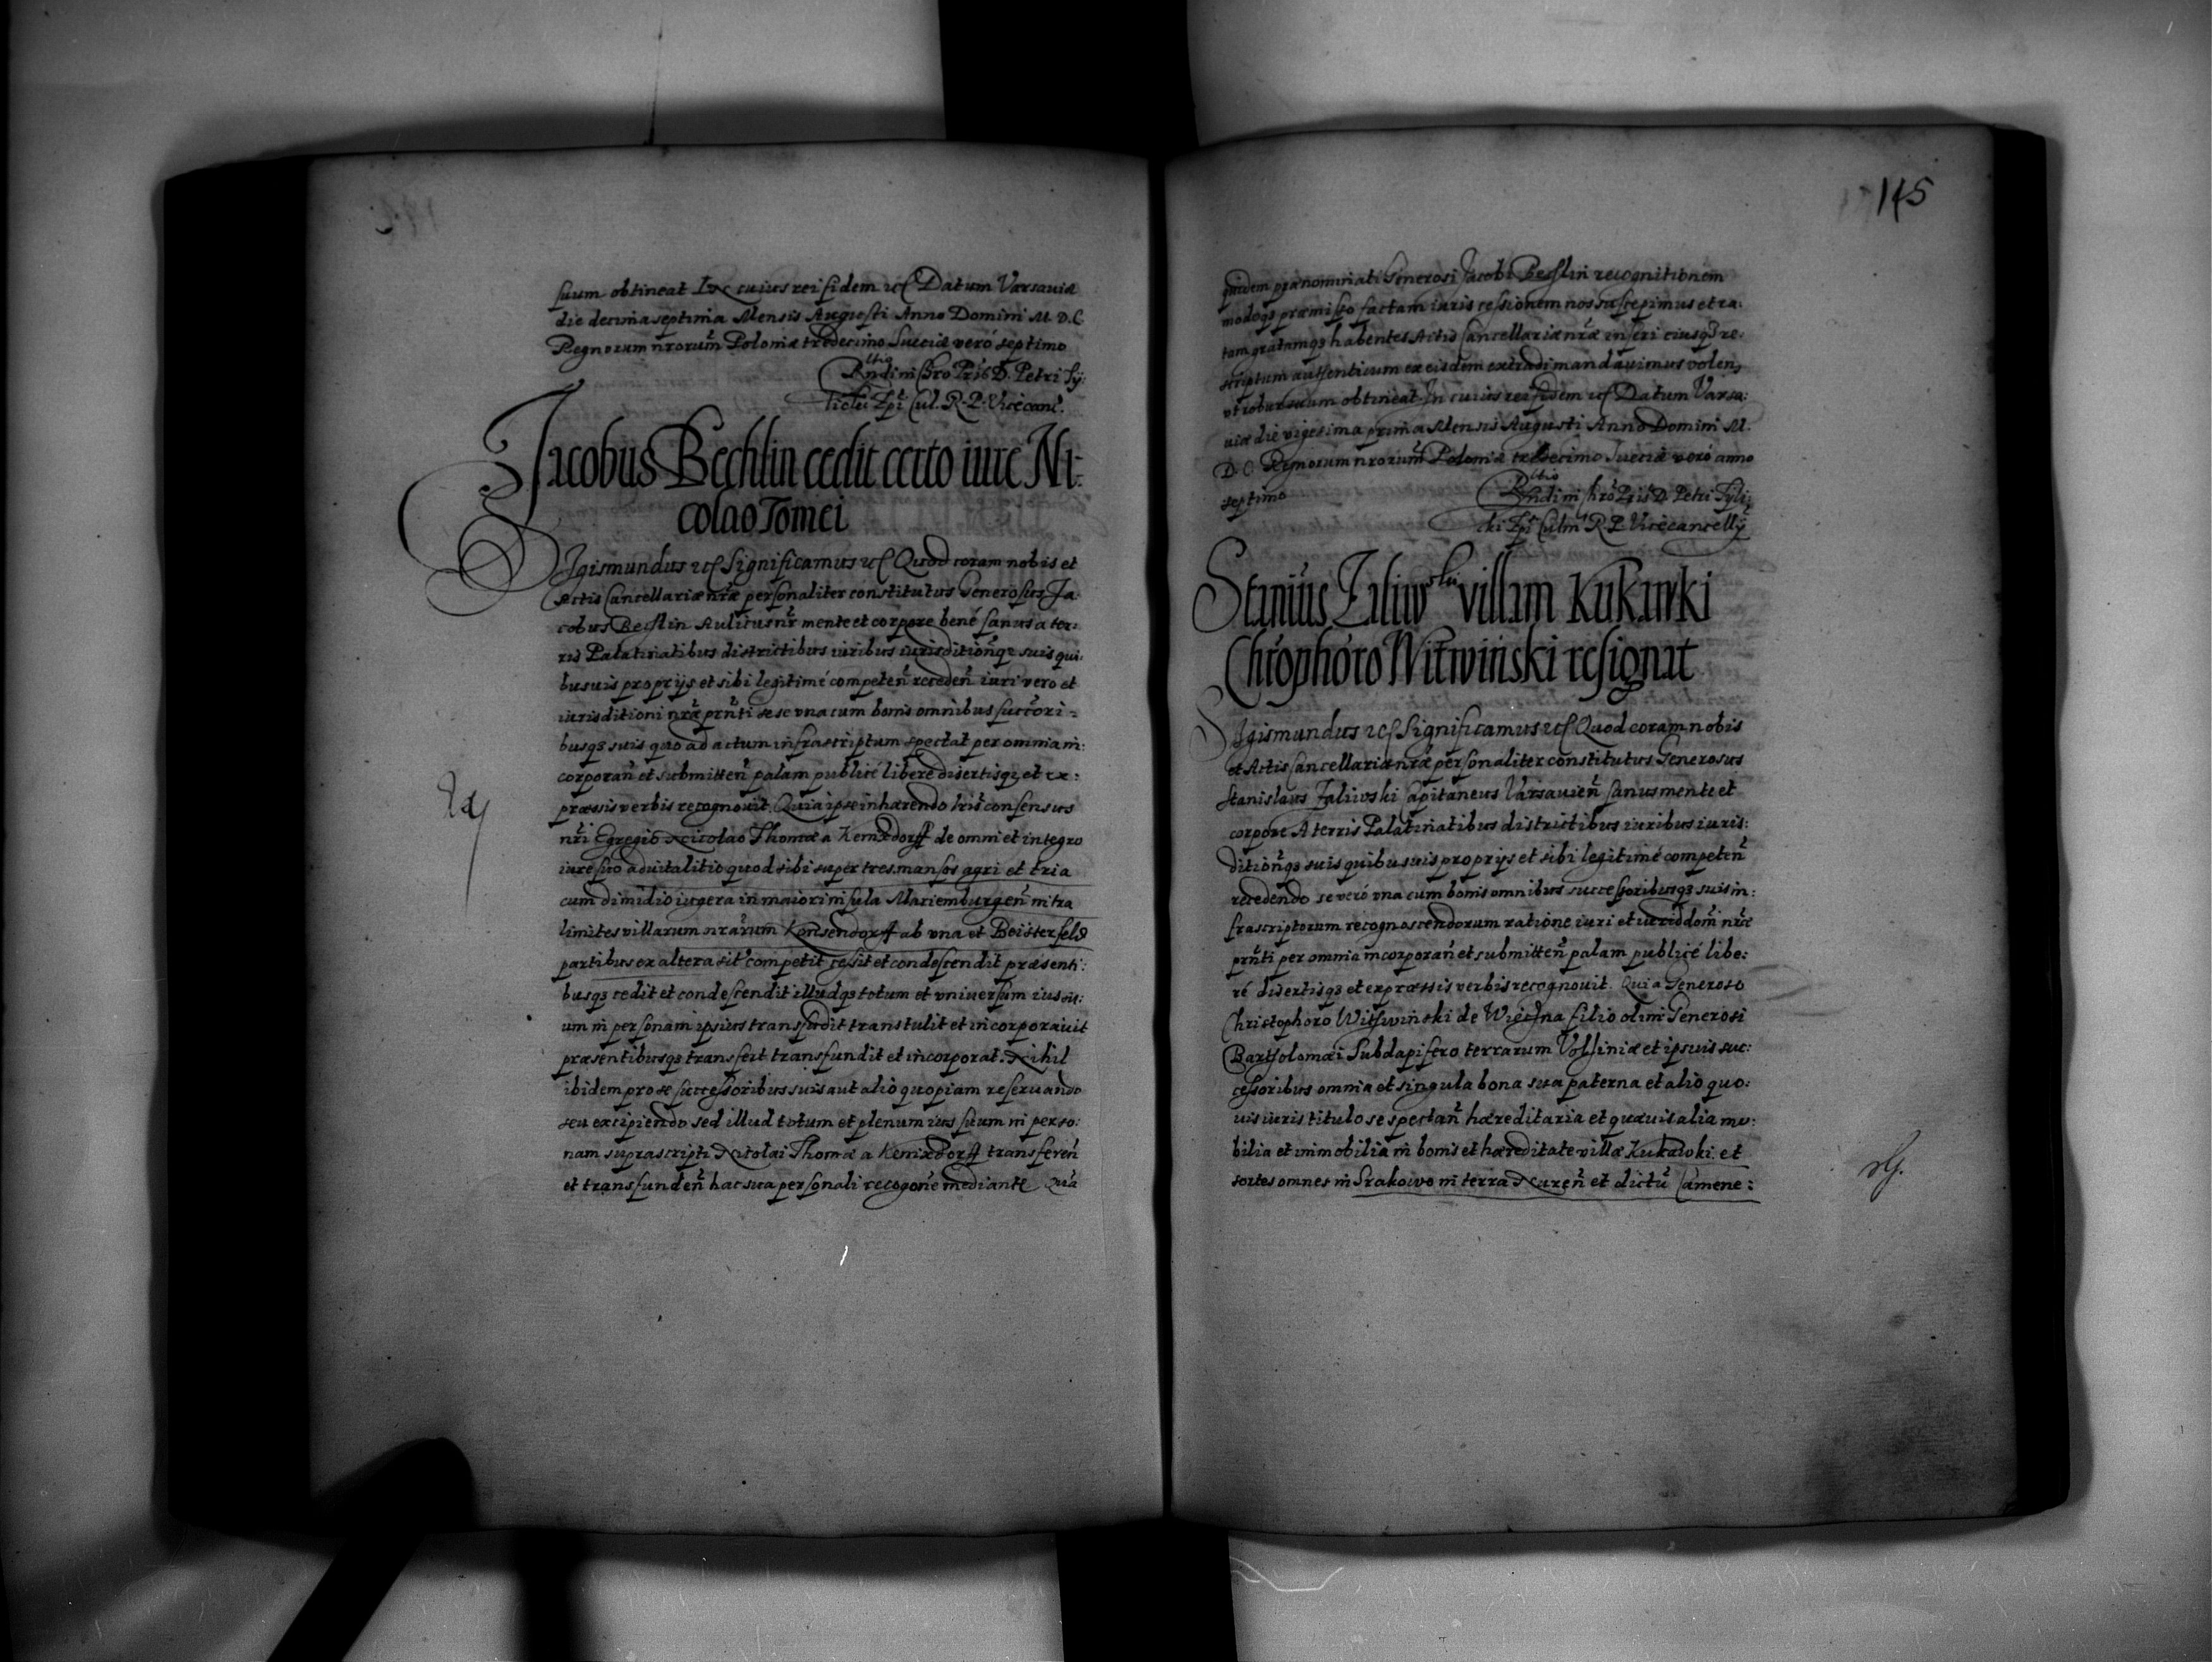 suum obtineat In cuius rei fidem ꝛc Datum Varsauiæ
die decima septima Mensis Augusti Anno Domini M. D. C.
Regnorum nrorum Poloniæ tredecimo Sueciæ veró septimo
Rltio
Rndi in Chro Pris D. Petri Ty:
licki Epi Cul. R. P. Vicecanc.
Jacobus Bechlin cedit certo iure Ni:
colao Tomei
Sigismundus ꝛc Significamus ꝛc Quod coram nobis et
Actis Cancellariæ nræ personaliter constitutus Generosus Ja
cobus Bechlin Aulicus nr mente et corpore bené sanus a ter:
ris Palatinatibus districtibus iuribus iurisditionq3 suis qui:
busuis proprijs et sibi legitimé competen recedeñ iuri vero et
iurisditioni nræ prnti sese vna cum bonis omnibus succori =
busq3 suis quo ad actum infrascriptum spectat per omnia in:
corporañ et submitteñ palam publicé liberé disertisq3 et ex:
præssis verbis recognouit. Quia ipse inhærendo lris consensus
nri Egregio Nicolao Thomæ a Kemxdorff de omni et integro
iure suo aduitalitio quod sibi super tres mansos agri et tria
cum dimidio iugera in maiori insula Mariemburgeñ intra
limites villarum nrarum Konsendorff ab vna et Beisterfeld
partibus ex altera sit competit cessit et condescendit præsenti:
busq3 cedit et condescendit illudq3 totum et vniuersum ius su:
um in personam ipsius transfudit transtulit et incorporauit
præsentibusq3 transfert transfundit et incorporat. Nihil
ibidem pro se successoribus suis aut alio quopiam reseruando
seu excipiendo sed illud totum et plenum ius suum in perso:
nam suprascripti Nicolai Thomæ a Kemxdorff transfereñ
et transfundeñ hac sua personali recogone mediante Qua
145
quidem prænominati Generosi Jacobi Bechlin recognitionem
modoq3 præmisso factam iuris cessionem nos suscepimus et ra:
tam gratamq3 habentes Actis Cancellariæ nræ inseri eiusq3 re:
scriptum authenticum ex eisdem extradi mandauimus volen,
vt robur suum obtineat In cuius rei fidem ꝛc Datum Varsa:
uiæ die vigesima prima Mensis Augusti Anno Domini M.
D. C. Regnorum nrorum Poloniæ tredecimo Sueciæ veró anno
septimo
Rltio
Rndi in Chro Pris D. Petri Tyli:
cki Epi Culm R. P. Vicecancellij
Stanius Zaliwski villam Kukawki
Chrophoro Witwiński resignat
Sigismundus ꝛc Significamus ꝛc Quod coram nobis
et Actis Cancellariæ nræ personaliter constitutus Generosus
Stanislaus Zaliwski Capitaneus Varsauień sanus mente et
corpore A terris Palatinatibus districtibus iuribus iuris:
ditionq3 suis quibusuis proprijs et sibi legitimé competeñ
recedendo se veró vna cum bonis omnibus successoribusq3 suis in:
frascriptorum recognoscendorum ratione iuri et iurisdom nræ
prnti per omnia incorporañ et submitteñ palam publicé libe:
ré disertisq3 et expræssis verbis recognouit. Quia Generoso
Christophoro Withwiński de filio olim Generosi
Bartholomæi Subdapifero terrarum Volhiniæ et ipsuis suc:
cessoribus omnia et singula bona sua paterna et alio quo:
uis iuris titulo se spectañ hæreditaria et quæuis alia mo:
bilia et immobilia in bonis et hæreditate villæ Kukawki et
sortes omnes in Srakowo in terra Nureñ et dictu Camene: